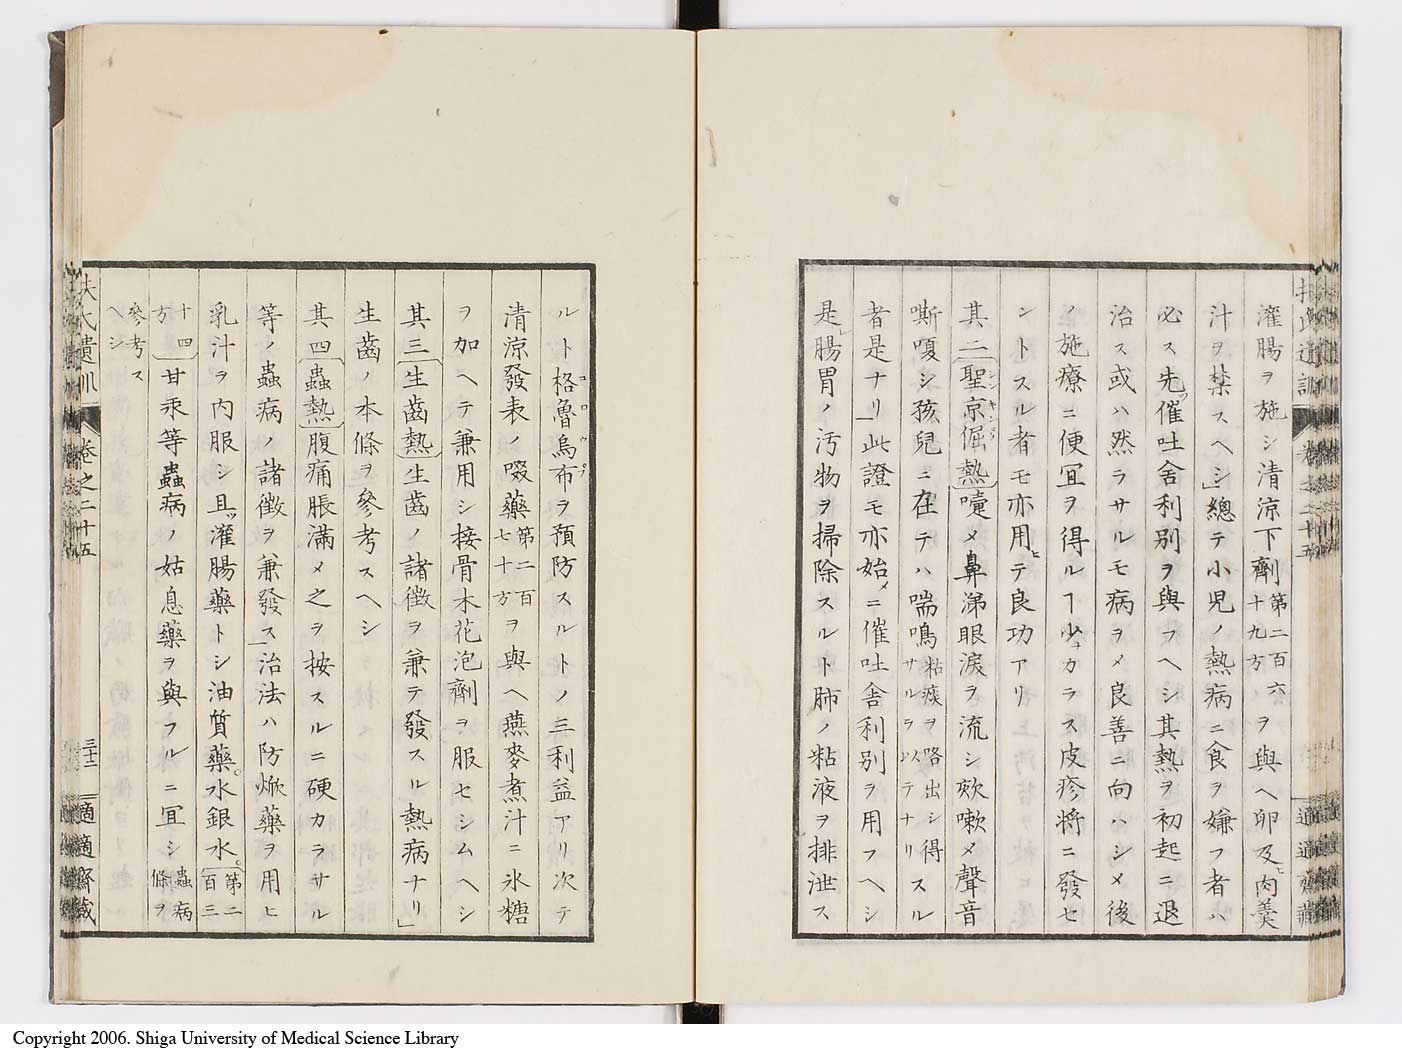 灌腸ヲ施シ清涼下劑第二百六十九方ヲ與ヘ卵及ヒ肉羹
汁ヲ禁スヘシ」總テ小児ノ熱病ニ食ヲ嫌フ者ハ
必ス先ツ催吐舍利別ヲ與フヘシ其熱ヲ初起ニ退
治ス或ハ然ラサルモ病ヲメ良善ニ向ハシメ後
ノ施療ニ便冝ヲ得ルヿ少ナカラス皮疹將ニ發セ
ントスル者モ亦用ヒテ良功アリ
其二聖京倔熱嚔メ鼻涕眼淚ヲ流シ欬嗽メ聲音
嘶嗄シ孩兒ニ在テハ喘鳴粘痰ヲ咯出シ得サルヲ以テナリスル
者是ナリ」此證モ亦始メニ催吐舍利別ヲ用フヘシ
是レ腸胃ノ汚物ヲ掃除スルト肺ノ粘液ヲ排泄ス
ルト格魯烏布ヲ預防スルトノ三利益アリ次テ
清涼發表ノ啜藥第二百七十方ヲ與ヘ燕麥煮汁ニ氷糖
ヲ加ヘテ兼用シ接骨木花泡劑ヲ服セシムヘシ
其三生齒熱生齒ノ諸徵ヲ兼テ發スル熱病ナリ」
生齒ノ本條ヲ參考スヘシ
其四蟲熱腹痛脹滿メ之ヲ按スルニ硬カラサル
等ノ蟲病ノ諸徵ヲ兼發ス」治法ハ防焮藥ヲ用ヒ
乳汁ヲ内服シ且ツ灌腸藥トシ油質藥。水銀水。第二百三
十四方甘汞等蟲病ノ姑息藥ヲ與フルニ冝シ蟲病條ヲ
參考スヘシ
扶氏遺訓 卷之二十五 三十二 適適齋藏